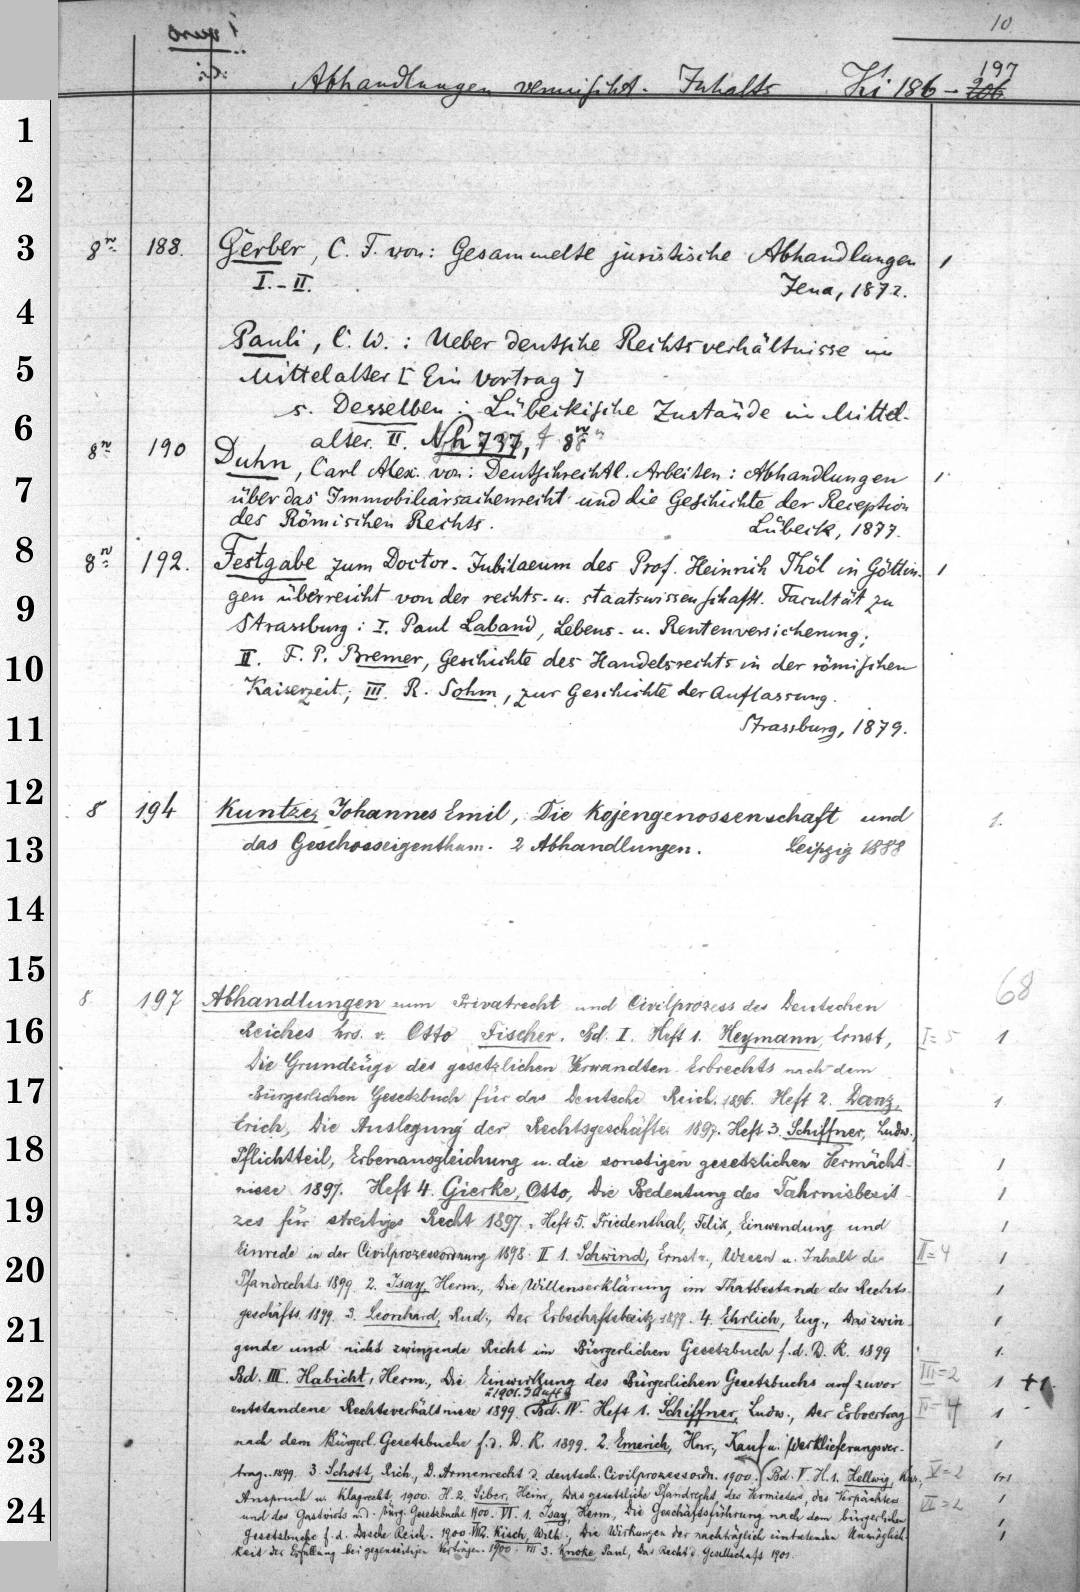 10
197
Abhandlungen vermischt. Inhalts Ki 186 - 206
1
2
3 8º 188. Gerber, C. F. von: Gesammelte juristische Abhandlungen 1
I.-II. Jena, 1872.
4
Pauli, C. W.: Ueber deutsche Rechtsverhältnisse im
5 Mittelalter [Ein Vortrag]
s. Desselben: Lübeckische Zustände im Mittel-
6 alter. II. Nh 737, 8º
8º 190 Duhn, Carl Alex. von: Deutschrechtl. Arbeiten: Abhandlungen 1
7 über das Immobiliarsachenrecht und die Geschichte der Reception
des Römischen Rechts. Lübeck, 1877.
8 8º 192. Festgabe zum Doctor-Jubilaeum des Prof. Heinrich Thöl in Göttin- 1
9 gen überreicht von der rechts- u. staatswissenschaftl. Facultät zu
Strassburg: I. Paul Laband, Lebens- u. Rentenversicherung;
10 II. F. P. Bremer, Geschichte des Handelsrechts in der römischen
Kaiserzeit; III. R. Sohm, zur Geschichte der Auflassung.
11 Strassburg, 1879.
12 8 194 Kuntze, Johannes Emil, Die Kojengenossenschaft und 1.
13 das Geschosseigenthum. 2 Abhandlungen. Leipzig 1888
14
15 68
8 197 Abhandlungen zum Privatrecht und Civilprozess des Deutschen
16 Reiches hrs. v. Otto Fischer. Bd. I. Heft 1. Heymann, Ernst, I=5 1
Die Grundzüge des gesetzlichen Verwandten-Erbrechts nach dem
17 Bürgerlichen Gesetzbuch für das Deutsche Reich. 1896. Heft 2. Danz, 1
Erich, Die Auslegung der Rechtsgeschäfte 1897. Heft 3. Schiffner, Ludw.,
18 Pflichtteil, Erbenausgleichung u. die sonstigen gesetzlichen Vermächt- 1
nisse 1897. Heft 4. Gierke, Otto, Die Bedeutung des Fahrnisbesit- 1
19 zes für streitiges Recht 1897. Heft 5. Friedenthal, Felix, Einwendung und 1
Einrede in der Civilprozessordnung 1898. II 1. Schwind, Ernst v., Wesen u. Inhalt des II=4 1
20 Pfandrechts 1899. 2. Isay, Herm., Die Willenserklärung im Thatbestande des Rechts- 1
geschäfts 1899. 3. Leonhard, Rud., Der Erbschaftsbesitz 1899. 4. Ehrlich, Eug., Das zwin- 1
21 gende und nicht zwingende Recht im Bürgerlichen Gesetzbuch f. d. D. R. 1899 1.
22 Bd. III. Habicht, Herm., Die Einwirkung des Bürgerlichen Gesetzbuchs auf zuvor III=2 1 +1
1901. 3 Aufl.
entstandene Rechtsverhältnisse 1899. Bd. IV. Heft 1. Schiffner, Ludw., Der Erbvertrag IV=4 1
23 nach dem Bürgerl. Gesetzbuche f. d. D. R. 1899. 2. Emerich, Hnr., Kauf u. Werklieferungsver- 1
trag. 1899. 3. Schott, Rich., D. Armenrecht d. deutsch. Civilprozessordn. 1900. Bd. V. H. 1. Hellwig, Kon., V=2
24 Anspruch u. Klagrecht, 1900. H. 2. Siber, Heinr., Das gesetzliche Pfandrecht des Vermieters, des Verpächters 1
und des Gastwirts n. d. Bürg. Gesetzbuche 1900. VI. 1. Isay, Herm., Die Geschäftsführung nach dem bürgerlichen VI=2 1
Gesetzbuche f. d. Dtsche Reich. 1900. VI 2. Kisch, Wilh., Die Wirkungen der nachträglich eintretenden Unmöglich- 1
keit der Erfüllung bei gegenseitigen Verträgen. 1900. VI 3. Knoke, Paul, Das Recht d. Gesellschaft 1901.